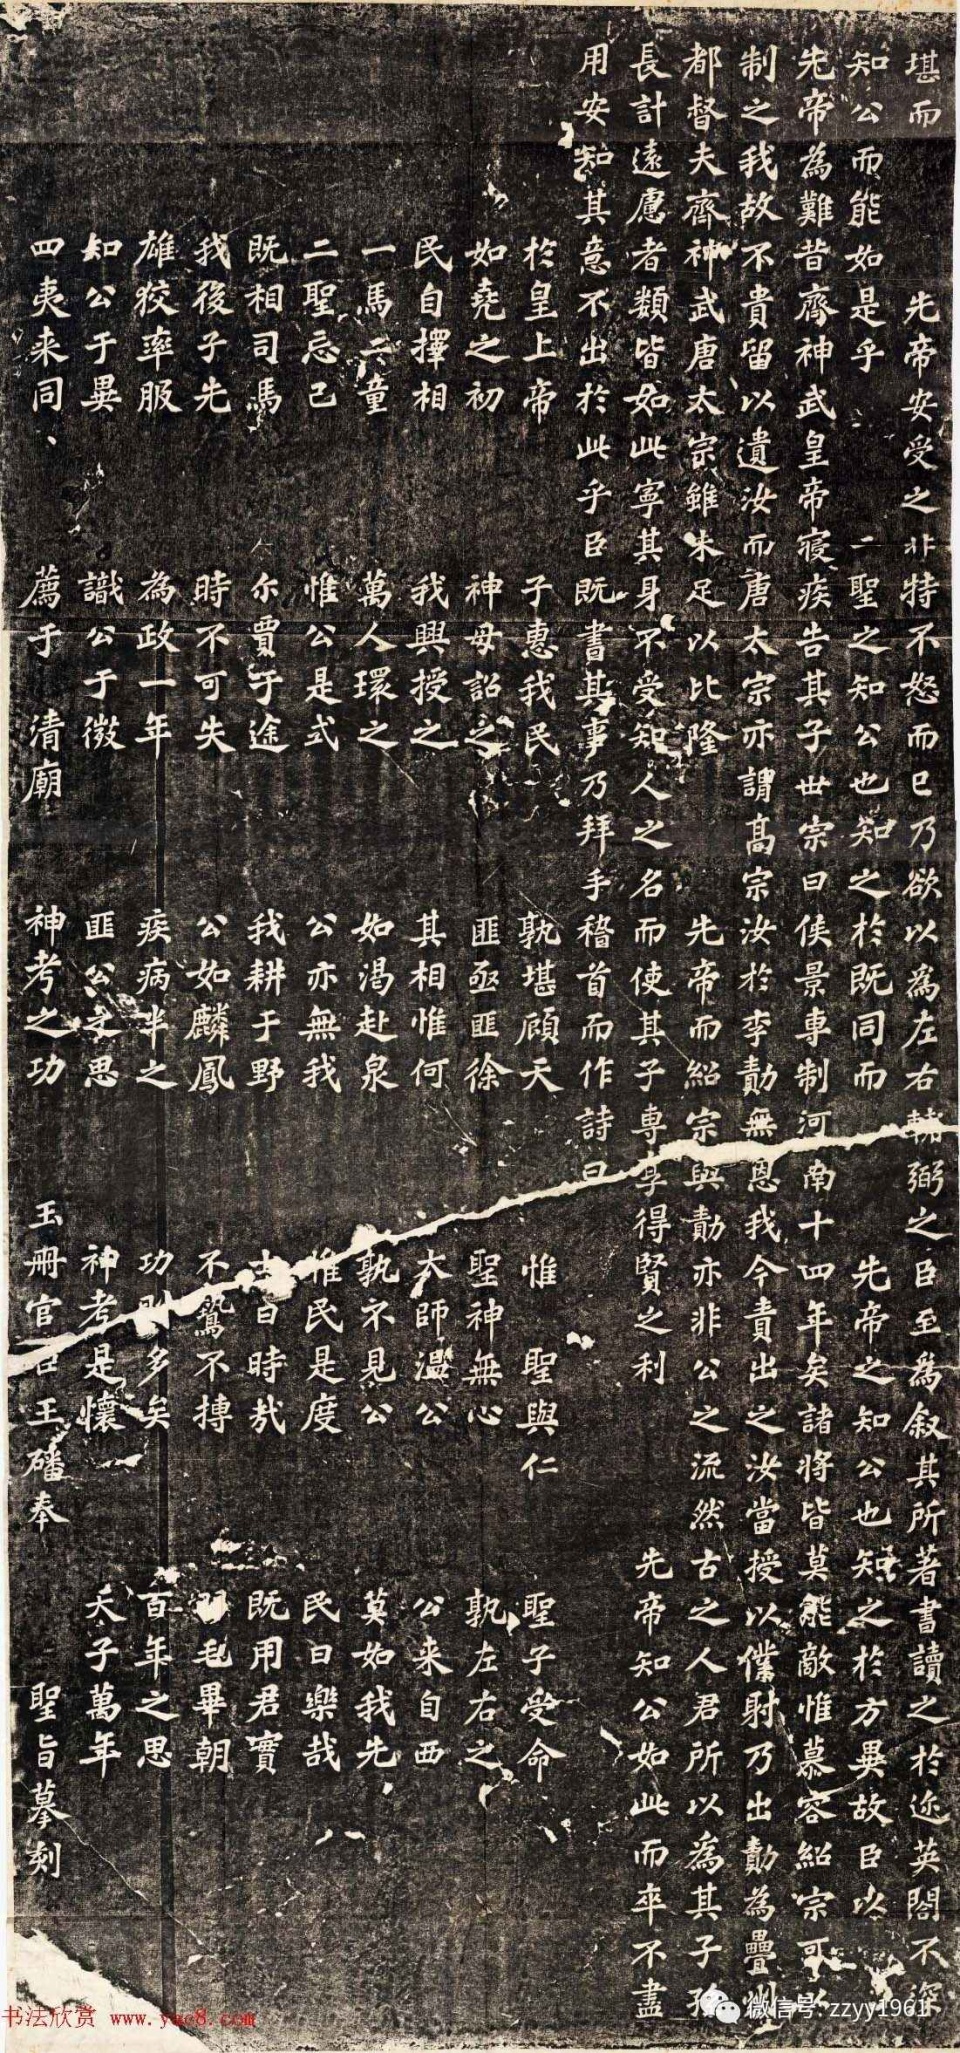 堪而　先帝安受之非特不怒而已乃欲以為左右輔弼之臣至為叙其所著書讀之於迩英閣不深
知公而能如是乎　二聖之知公也知之於既同而　先帝之知公也知之於方異故臣以
先帝為難昔齊神武皇帝寝疾告其子世宗曰侯景専制河南十四年矣諸將皆莫能敵惟慕容紹宗可以
制之我故不貴留以遺汝而唐太宗亦謂髙宗汝於李勣無恩我今責出之汝當授以僕射乃出勣為疊州
都督夫齊神武唐太宗雖未足以比隆　先帝而紹宗與勣亦非公之流然古之人君所以為其子孫
長計遠慮者類皆如此寧其身不受知人之名而使其子専享得賢之利　先帝知公如此而卒不盡
用安知其意不出於此乎臣既書其事乃拜手稽首而作詩曰
於皇上帝　子惠我民　孰堪顧天　惟　聖與仁　聖子受命
如堯之初　神母詔之　匪亟匪徐　聖神無心　孰左右之
民自擇相　我興授之　其相惟何　太師温公　公来自西
一馬二童　萬人環之　如渴赴泉　孰不見公　莫如我先
二聖忘己　惟公是式　公亦無我　惟民是度　民曰樂哉
既相司馬　尔賈于途　我耕于野　士曰時哉　既用君實
我後子先　時不可失　公如麟鳳　不鷙不搏　羽毛畢朝
雄狡率服　為政一年　疾病半之　功則多矣　百年之思
知公于異　識公于微　匪公之思　神考是懷　天子萬年
四夷来同、　薦于　清廟　神考之功　玉冊官臣王磻奉　聖旨摹刻
书法欣赏 www.yac8.com
微信号: zzyy1961